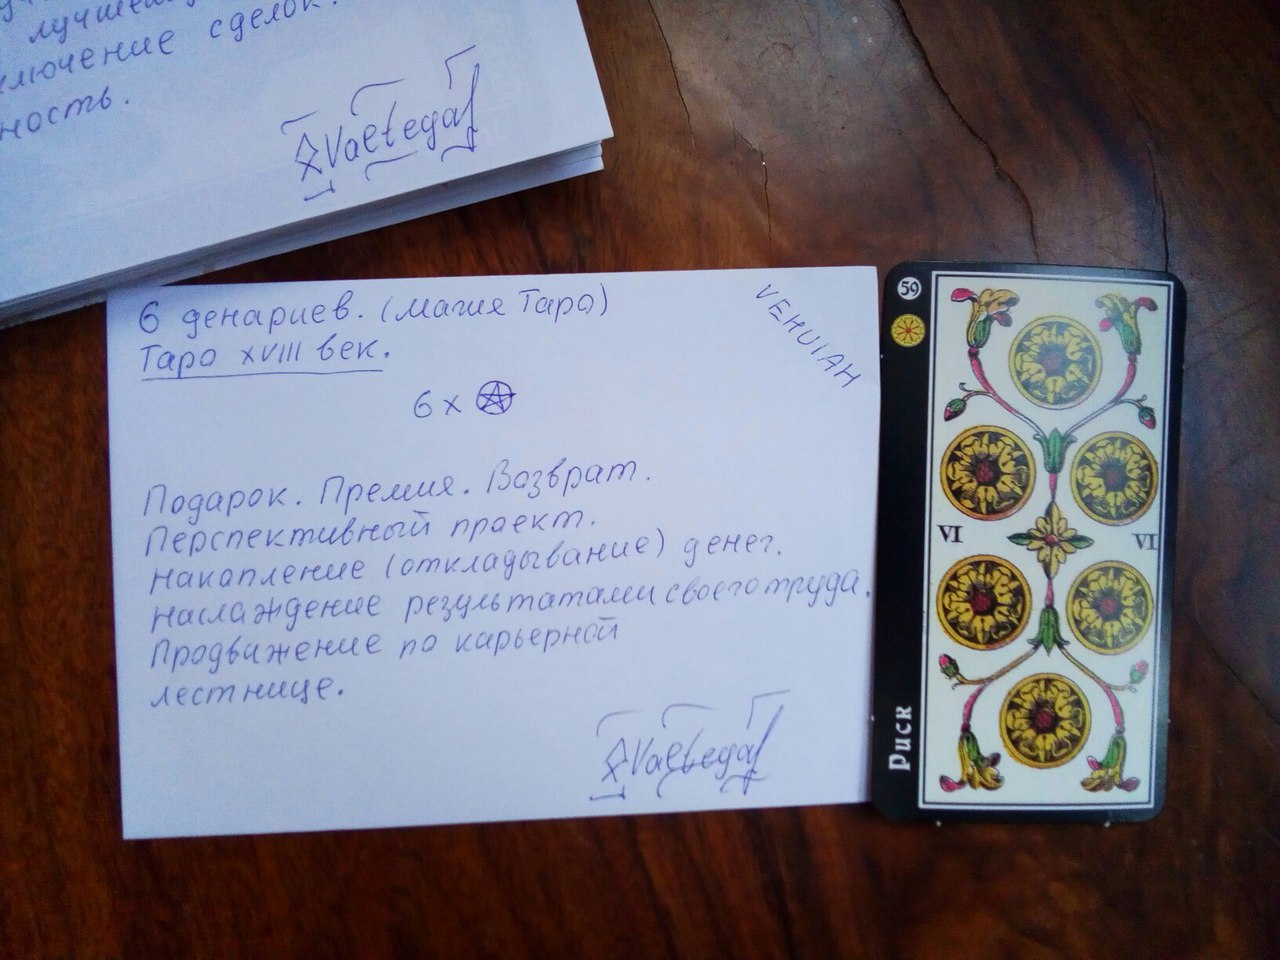 лучшем
ключение сделок.
ность.
Valtegaf
6 денариев. (Магия Таро)
Таро XVIII век.
VEHUIAH
6 x
Подарок. Премия. Возврат.
Перспективный проект.
Накопление (откладывание) денег.
Наслаждение результатами своего труда.
Продвижение по карьерной
лестнице.
Valtegaf
59
VI VI
Риск